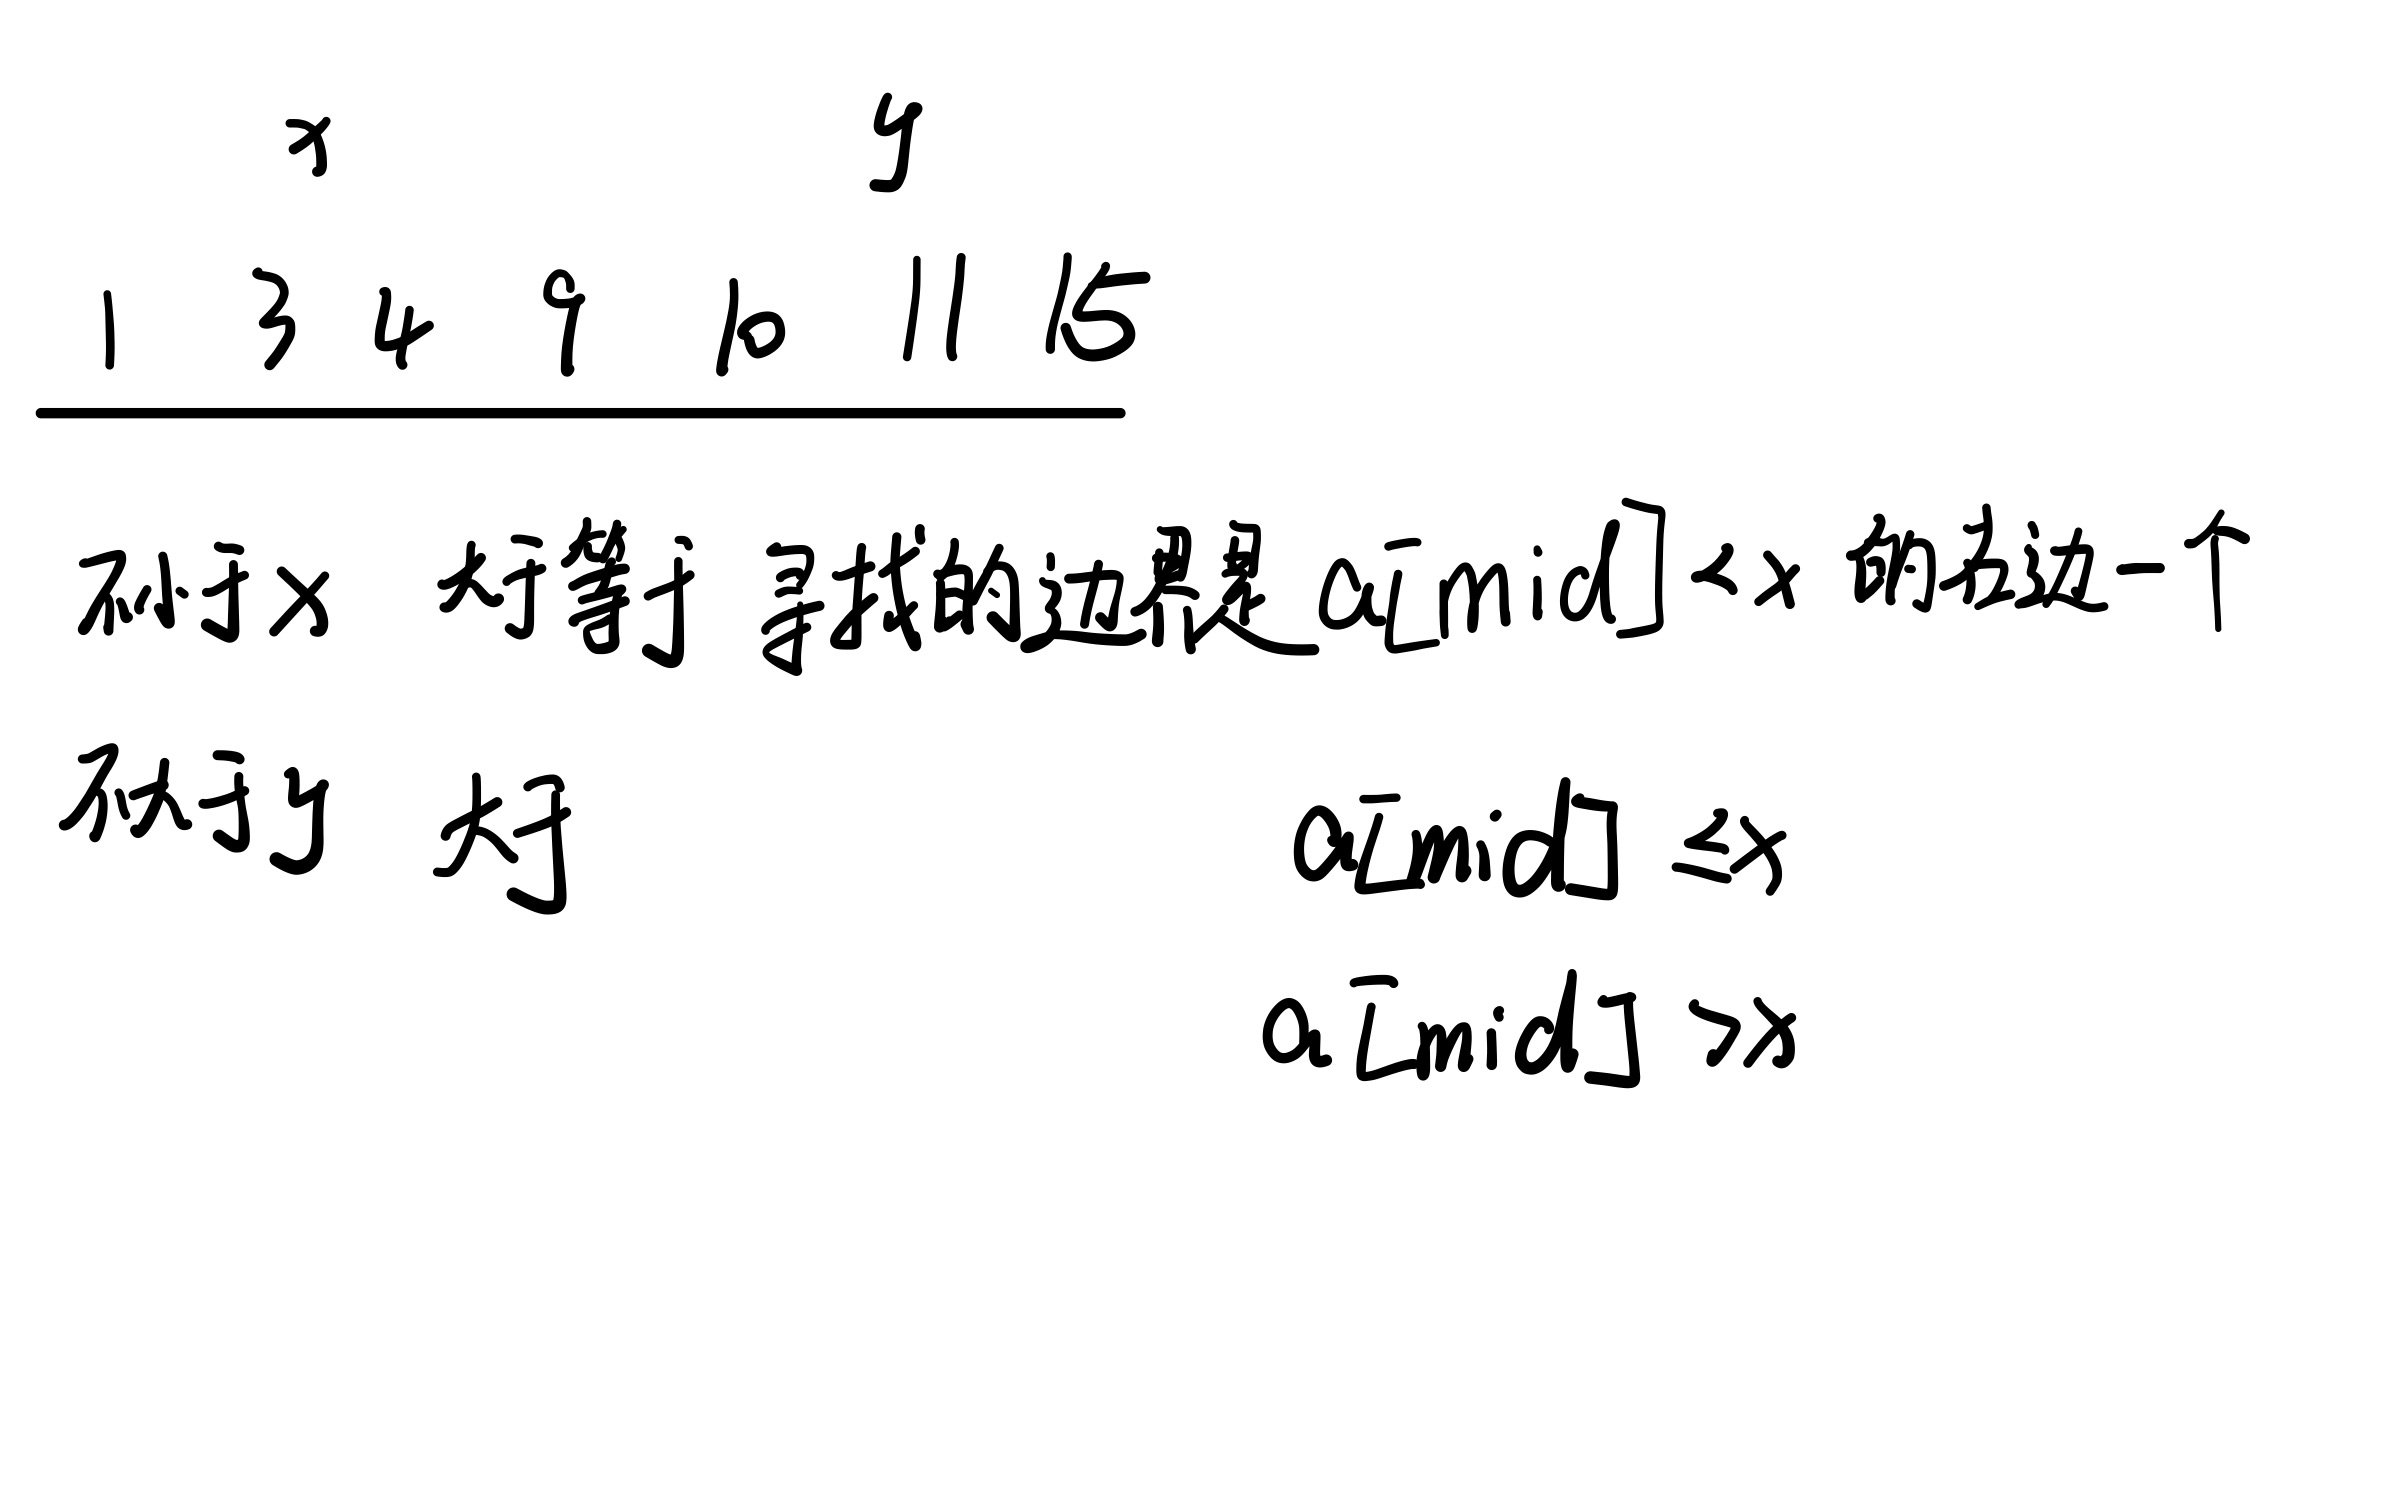 x y
1 3 4 9 10 11 15
对于x 大于等于 寻找的边界是a[mid]<x 的最边一个
对于y 大于 a[mid] ≤x
a[mid] >x